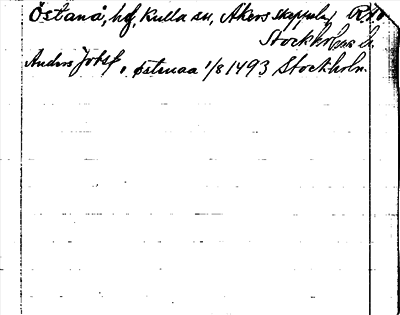 Östanå, hg, Kulla sn, Åkers skeppslag
Stockholms l.
Anders Jobsf, østnaa 1/8 1493 Stockholm.